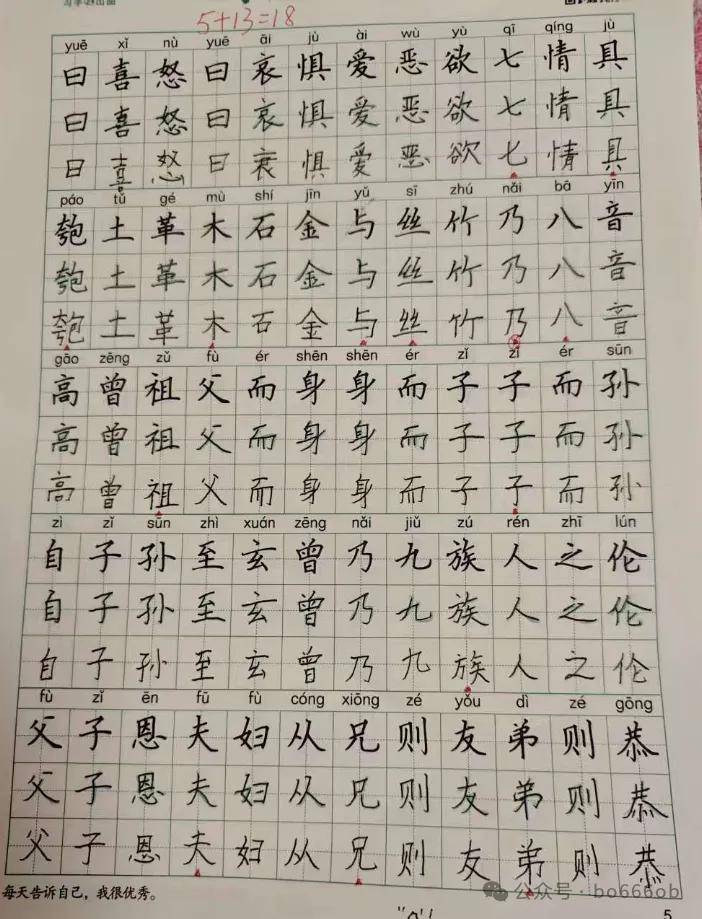 5+13=18
yuē xǐ nù yuē āi jù ài wù yù qī qíng jù
曰喜怒曰哀惧爱恶欲七情具
曰喜怒曰哀惧爱恶欲七情具
曰喜怒曰哀惧爱恶欲七情具
páo tǔ gé mù shí jīn yǔ sī zhú nǎi bā yīn
匏土革木石金与丝竹乃八音
匏土革木石金与丝竹乃八音
匏土革木石金与丝竹乃八音
gāo zēng zǔ fù ér shēn shēn ér zǐ zǐ ér sūn
高曾祖父而身身而子子而孙
高曾祖父而身身而子子而孙
高曾祖父而身身而子子而孙
zì zǐ sūn zhì xuán zēng nǎi jiǔ zú rén zhī lún
自子孙至玄曾乃九族人之伦
自子孙至玄曾乃九族人之伦
自子孙至玄曾乃九族人之伦
fù zǐ ēn fū fù cóng xiōng zé yǒu dì zé gōng
父子恩夫妇从兄则友弟则恭
父子恩夫妇从兄则友弟则恭
父子恩夫妇从兄则友弟则恭
每天告诉自己，我很优秀。
公众号·bo666ob
5